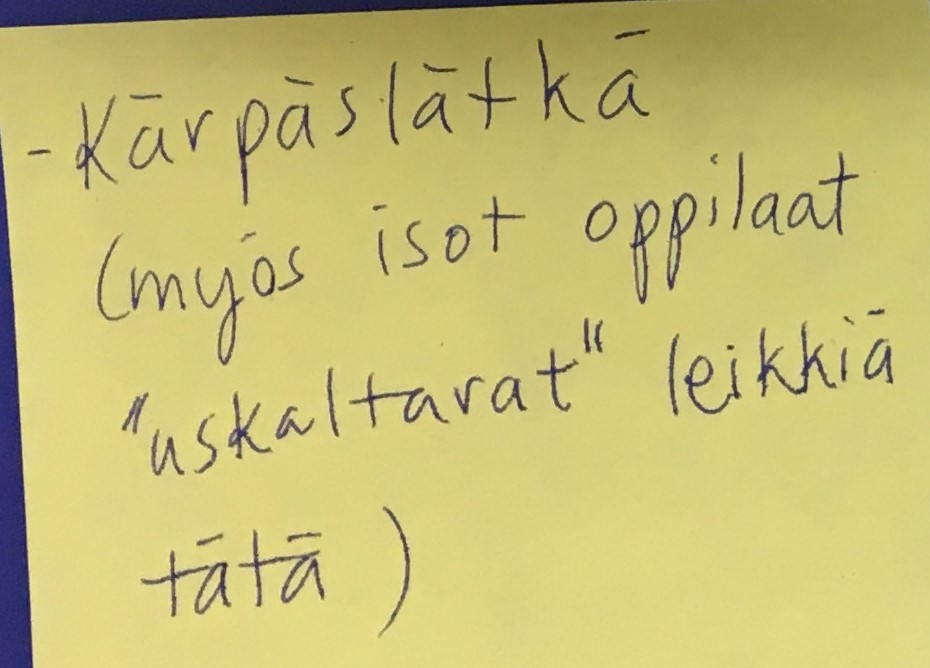 - Kärpäslätkä
(myös isot oppilaat
"uskaltavat" leikkiä
tätä)